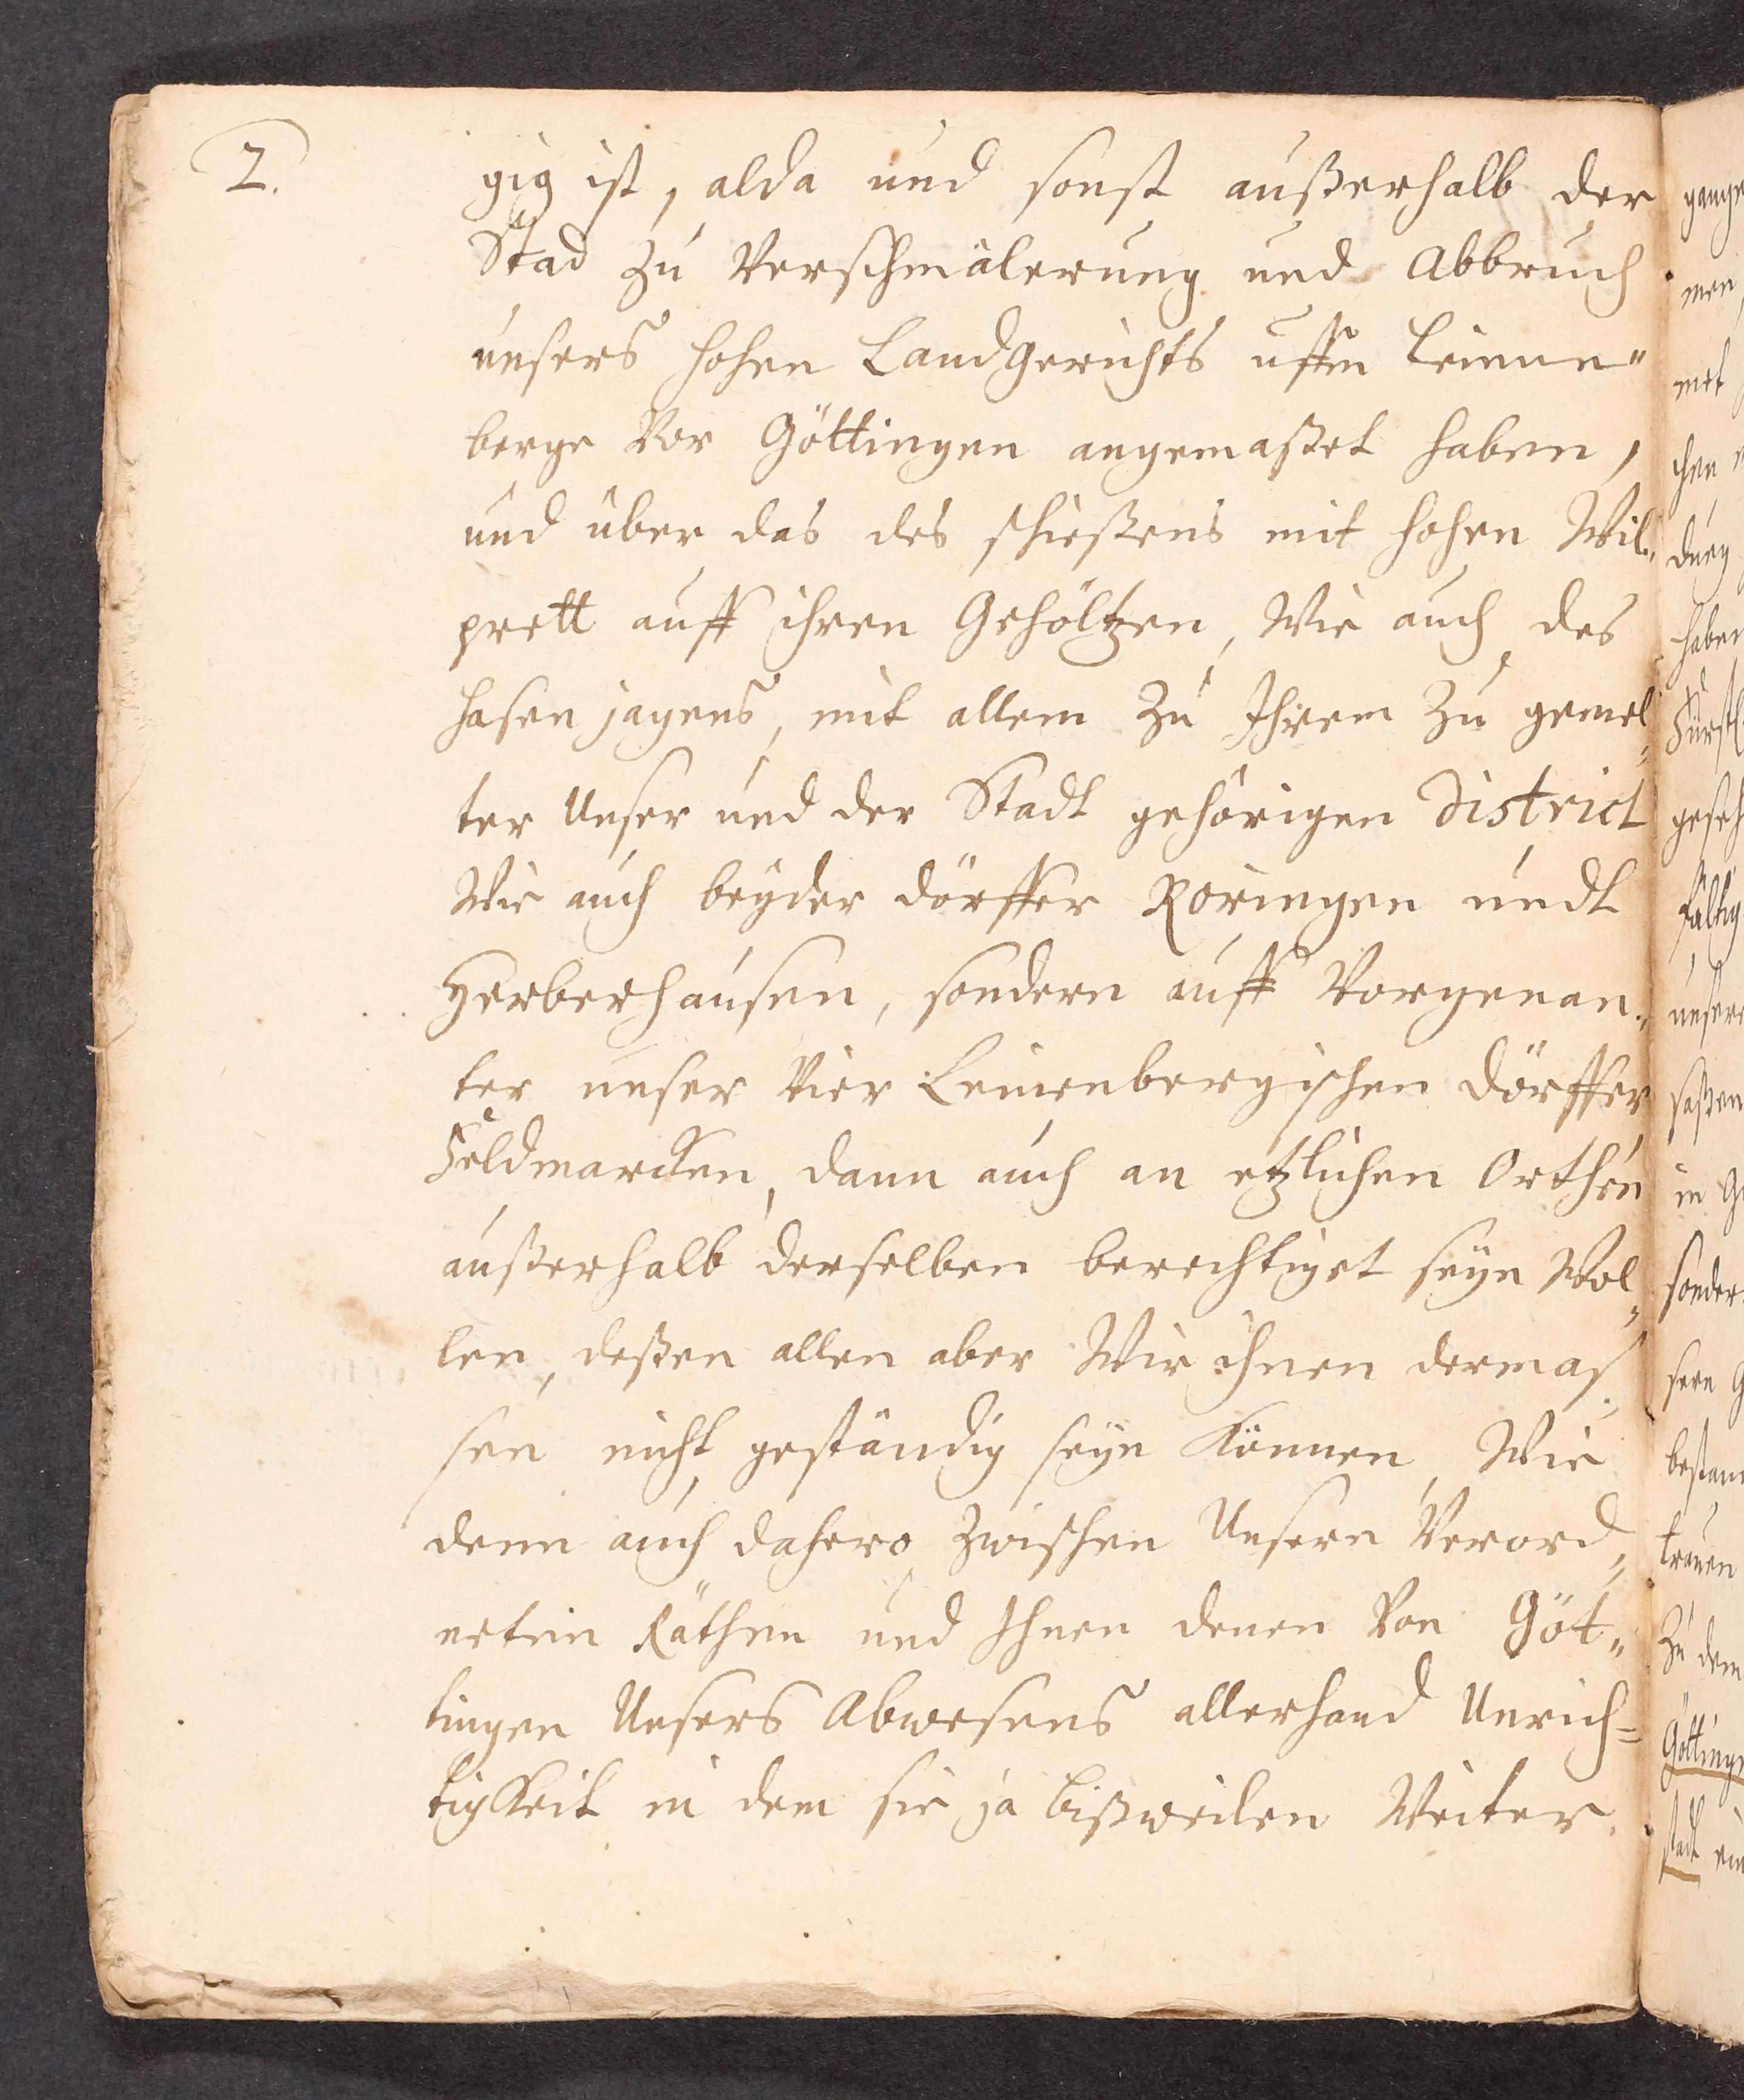 2.
gig ist, alda und sonst außerhalb der
Stad zu Verschmälerung und Abbruch
unsers hohen Landgerichts uffm Leinen„
berge vor Göttingen angemaßet haben,
und über das des schießens mit hohen Wil„
prett auff ihren Gehöltzen, Wie auch des
hasen jagens, mit allem zu Ihrem zu gemel„
ter Unser und der Stadt gehörigen District
Wie auch beyder dörffer Roringen undt
Herberhausen, sondern auff Vorgenan„
ter unser vier Leinenbergischen dörffer
Feldmarcken, dann auch an etzlichen Orthen
außerhalb derselben berechtiget seyn Wol„
len, deßen allen aber Wir ihnen dermas„
sen nicht geständig seyn können, Wie
denn auch dahero zwischen Unsern Verord„
neten Räthen und Ihnen denen von Göt„
tingen Unsers Abwesens allerhand Unrich=
tigkeit in dem sie ja bißweilen Weiter
gange
men
met
chen
dung
haben
Fürstl.
gesch
fältig
unsere
saßen
in
sonder
sern
bestan
trauen
zu dem
Göttinge
stadt